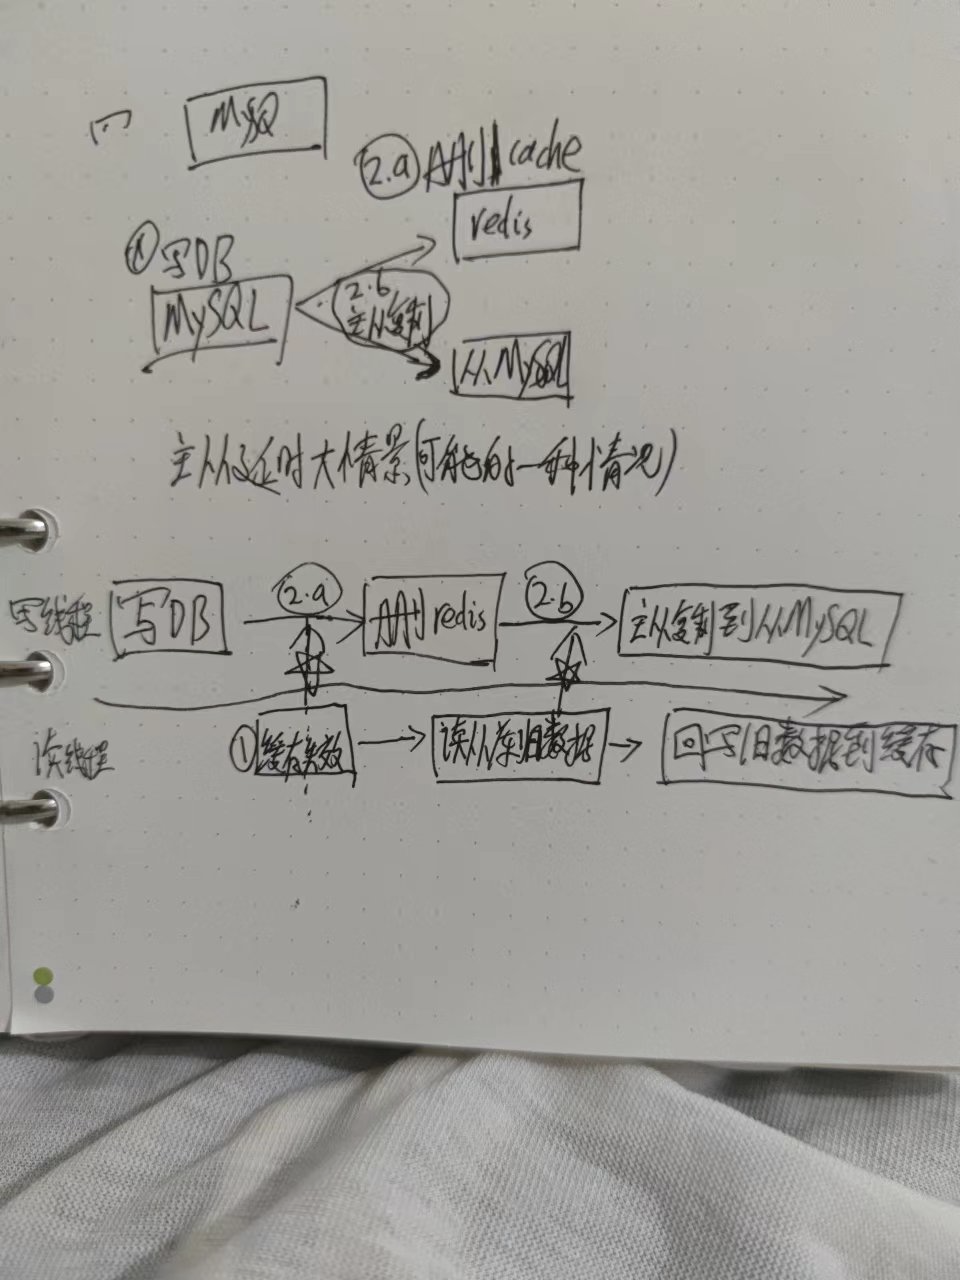 MySQ
2.a 删 cache
redis
① 写DB
MySQL
2.b
主从复制
从MySQL
主从延时大情景(可能的一种情况)
写线程 写DB 2.a 删redis 2.b 主从复制到从MySQL
读线程 ①缓存失效 读从库旧数据 回写旧数据到缓存